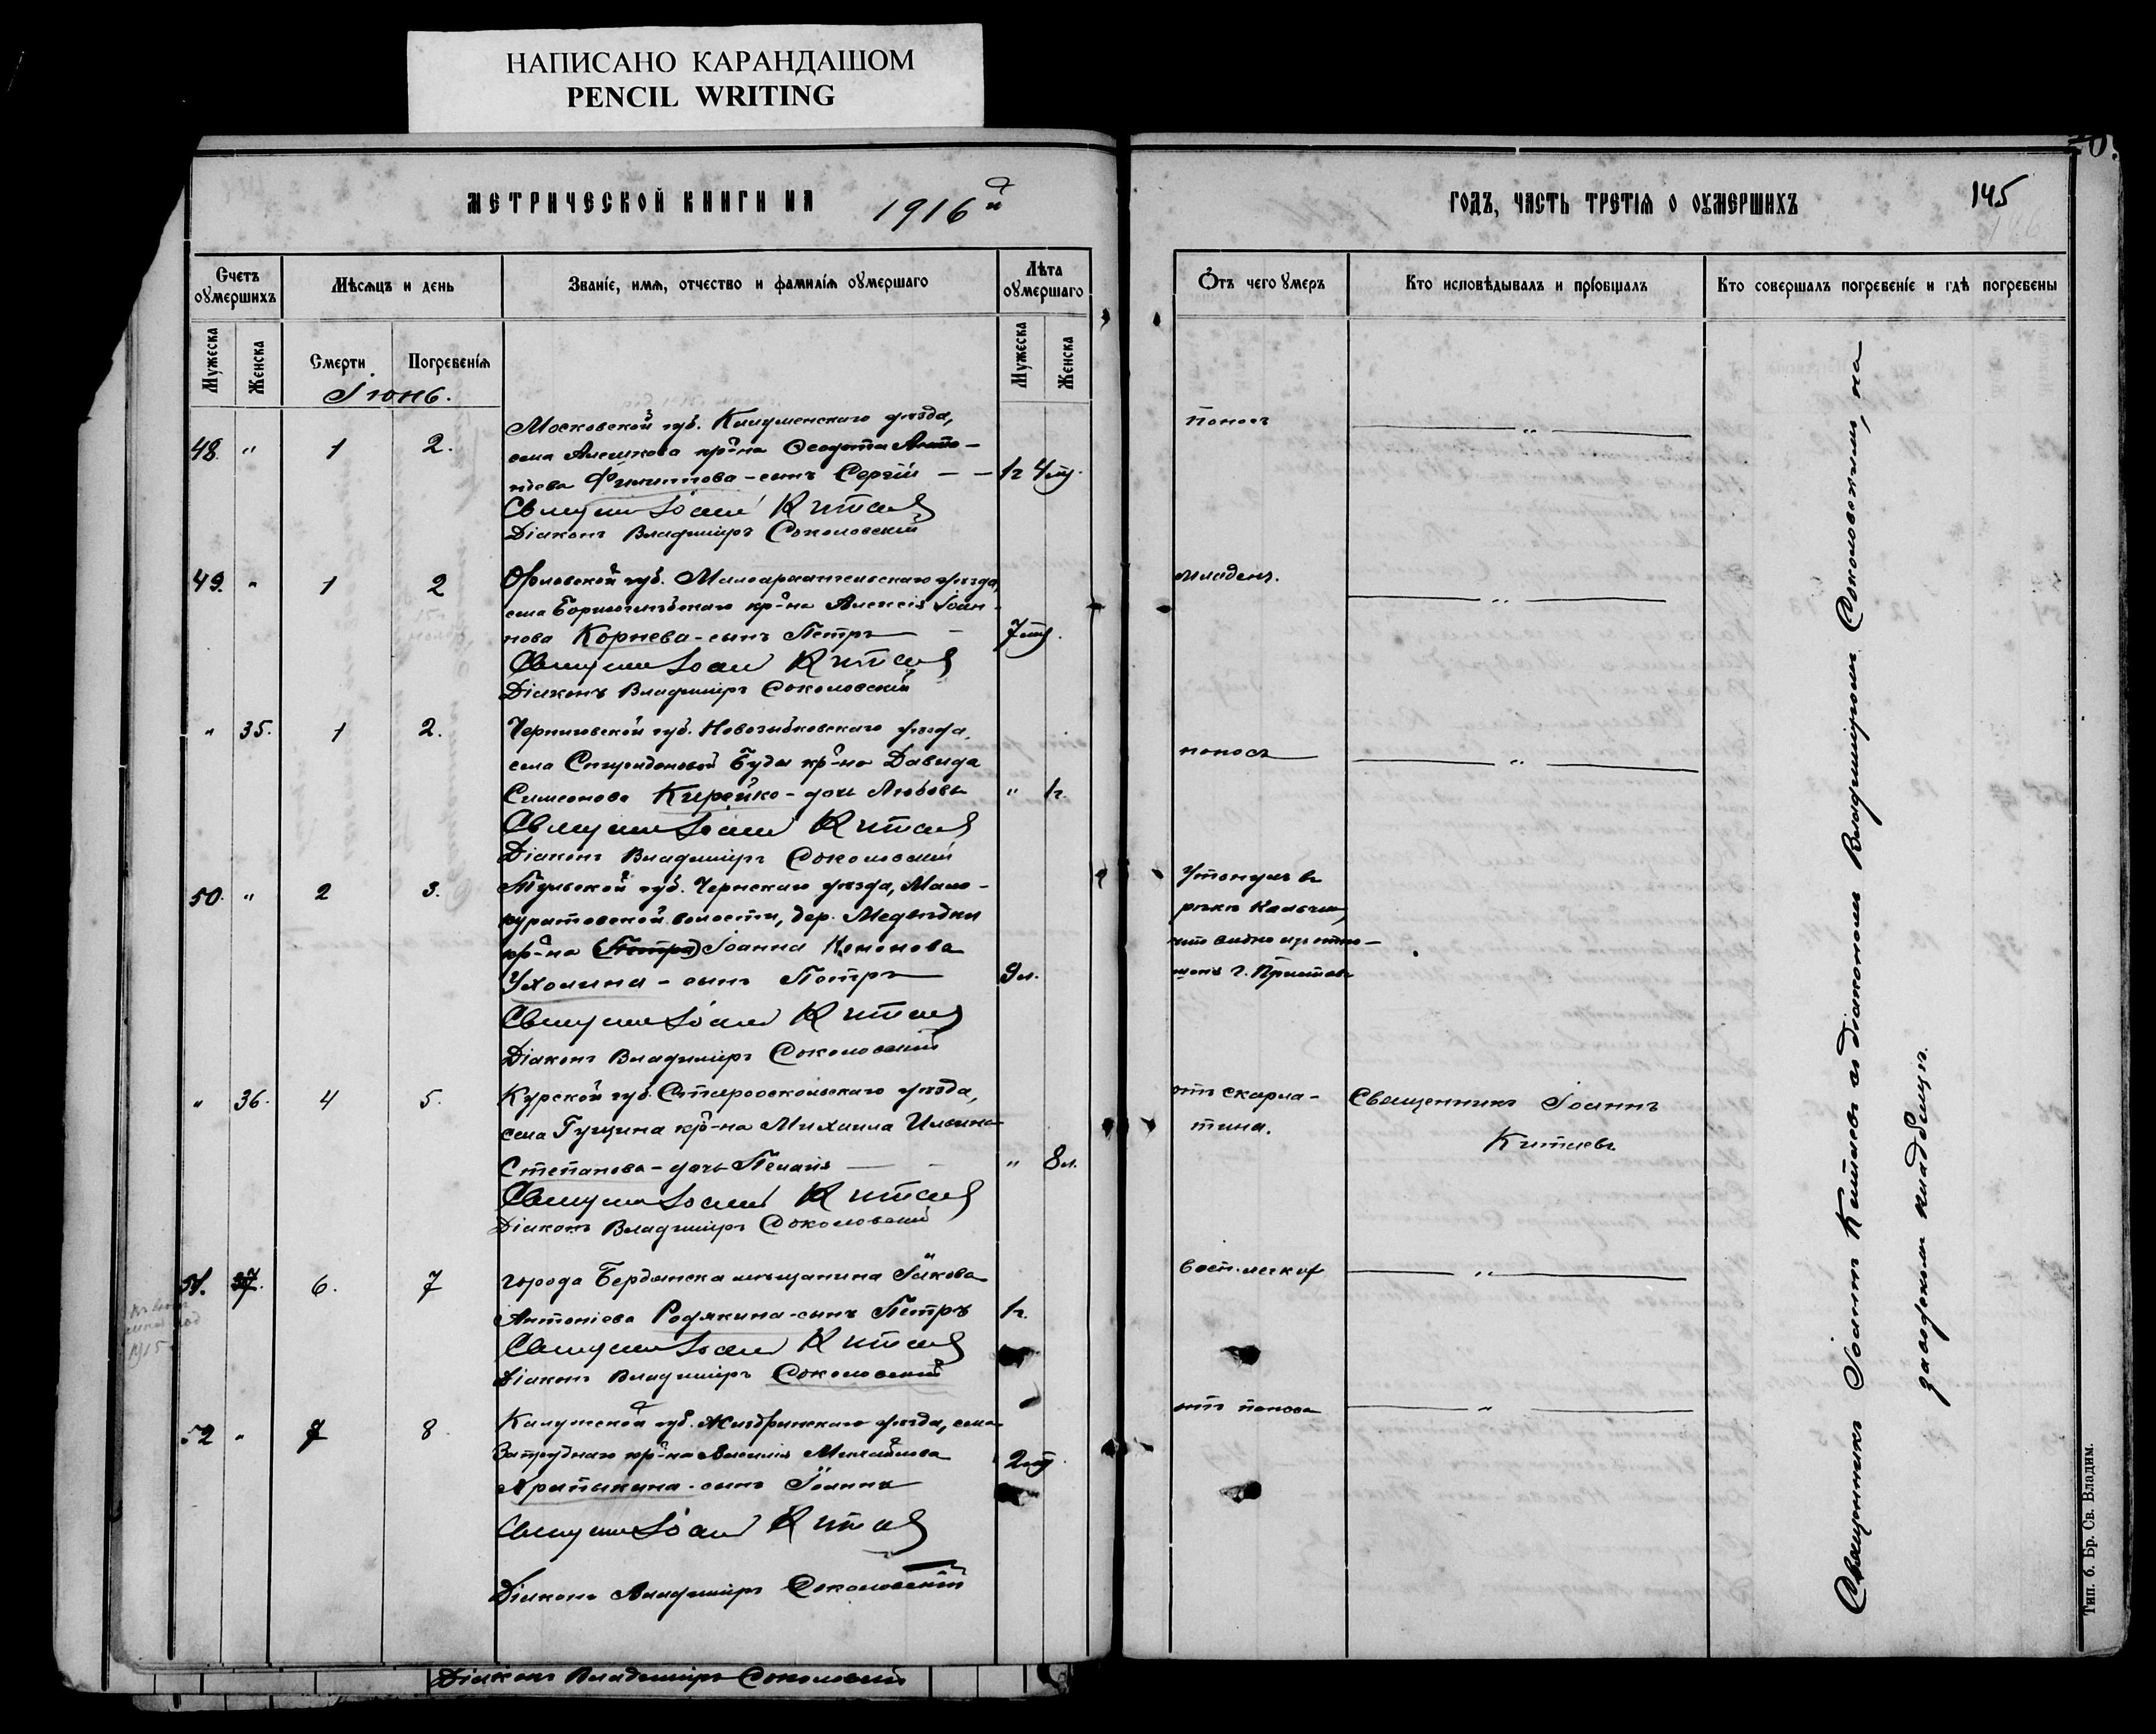 НАПИСАНО КАРАНДАШОМ
PENCIL WRITING
МЕТРИЧЕСКОЙ КНИГИ НА 1916й
Счетъ оумершихъ
Мѣсяцъ и день
Званіе, имя, отчество и фамилія оумершаго
Лѣта оумершаго
Мужеска
Женска
Смерти
Погребенія
Мужеска
Женска
Іюнь.
48. " 1 2.
Московской губ. уѣзда,
села Алешкова кр-на Ѳеодота Анто-
ніева Филиппова - сынъ Сергій - - 1г 4мц.
Священникъ Іоаннъ Китаевъ
Діаконъ Владиміръ Соколовскій
49. " 1 2
Орловской губ. Малоархангельскаго уѣзда,
села кр-на Алексія Іоан-
нова Корнева - сынъ Петръ - 7мц.
Священникъ Іоаннъ Китаевъ
Діаконъ Владиміръ Соколовскій
" 35. 1 2.
Черниговской губ. Новозыбковскаго уѣзда,
села Спиридоновой Буды кр-на Давида
Симеонова Кирейко - дочь Любовь " 1г.
Священникъ Іоаннъ Китаевъ
Діаконъ Владиміръ Соколовскій
50. " 2 3.
Тульской губ. Чернскаго уѣзда, Мало-
куратовской волости, дер. Медвѣдки
кр-на (Петра) Іоанна Кононова
Ухолина - сынъ Петръ 9л.
Священникъ Іоаннъ Китаевъ
Діаконъ Владиміръ Соколовскій
" 36. 4 5.
Курской губ. Старооскольскаго уѣзда,
села Гущина кр-на Михаила Ильина
Степанова - дочь Пелагія - - " 8л.
Священникъ Іоаннъ Китаевъ
Діаконъ Владиміръ Соколовскій
51. 37. 6. 7
города Бердянска мѣщанина Іакова
Антоніева Родякина - сынъ Петръ 1г.
1915
Священникъ Іоаннъ Китаевъ
Діаконъ Владиміръ Соколовскій
52 " 7 8
Калужской губ. Жиздринскаго уѣзда, села
кр-на Михайлова 2мц.
Храпыкина - сынъ Іоаннъ
Священникъ Іоаннъ Китаевъ
Діаконъ Владиміръ Соколовскій
Діаконъ Владиміръ Соколовскій
ГОДЪ, ЧАСТЬ ТРЕТІЯ О ОУМЕРШИХЪ
145
Отъ чего умеръ
Кто исповѣдывалъ и пріобщалъ
Кто совершалъ погребеніе и гдѣ погребены
поносъ - " -
младенч. - " -
поносъ - " -
Утонулъ въ
рѣкѣ Кальчик,
что видно изъ отно-
шенія г. Пристава
отъ скарла-
тина.
Священникъ Іоаннъ
Китаевъ
восп. легких - " -
отъ поноса - " -
Священникъ Іоаннъ Китаевъ съ діакономъ Владиміромъ Соколовскимъ, на
заводскомъ кладбищѣ.
Тип. б. Бр. Св. Владим.